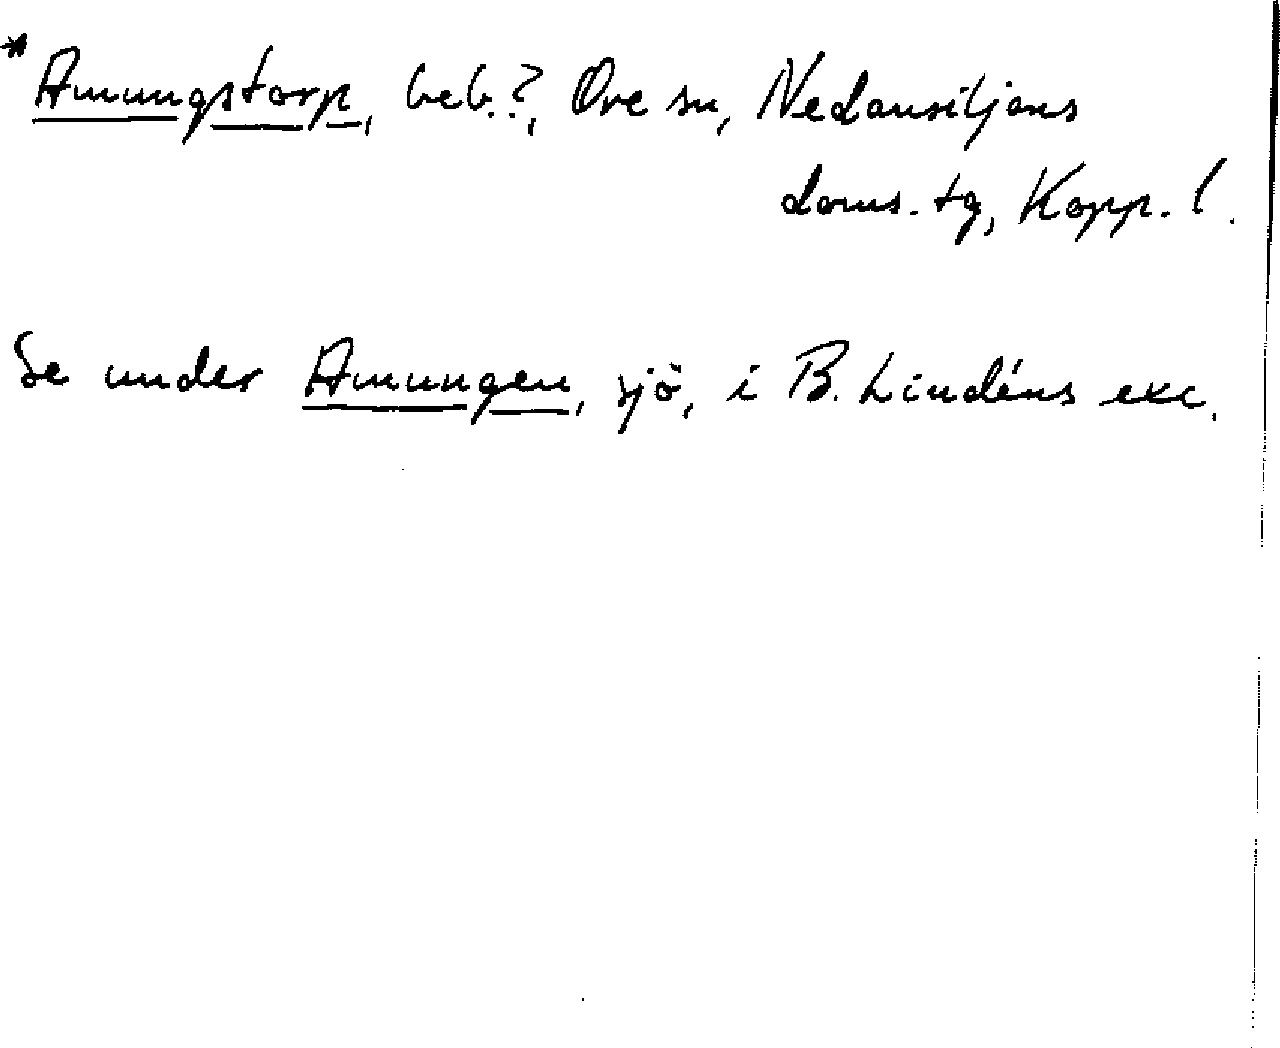 *Amungstorp, beb.?, Ore sn, Nedansiljans
doms. tg, Kopp. l.
Se under Amungen, sjö, i B. Lindéns exc.